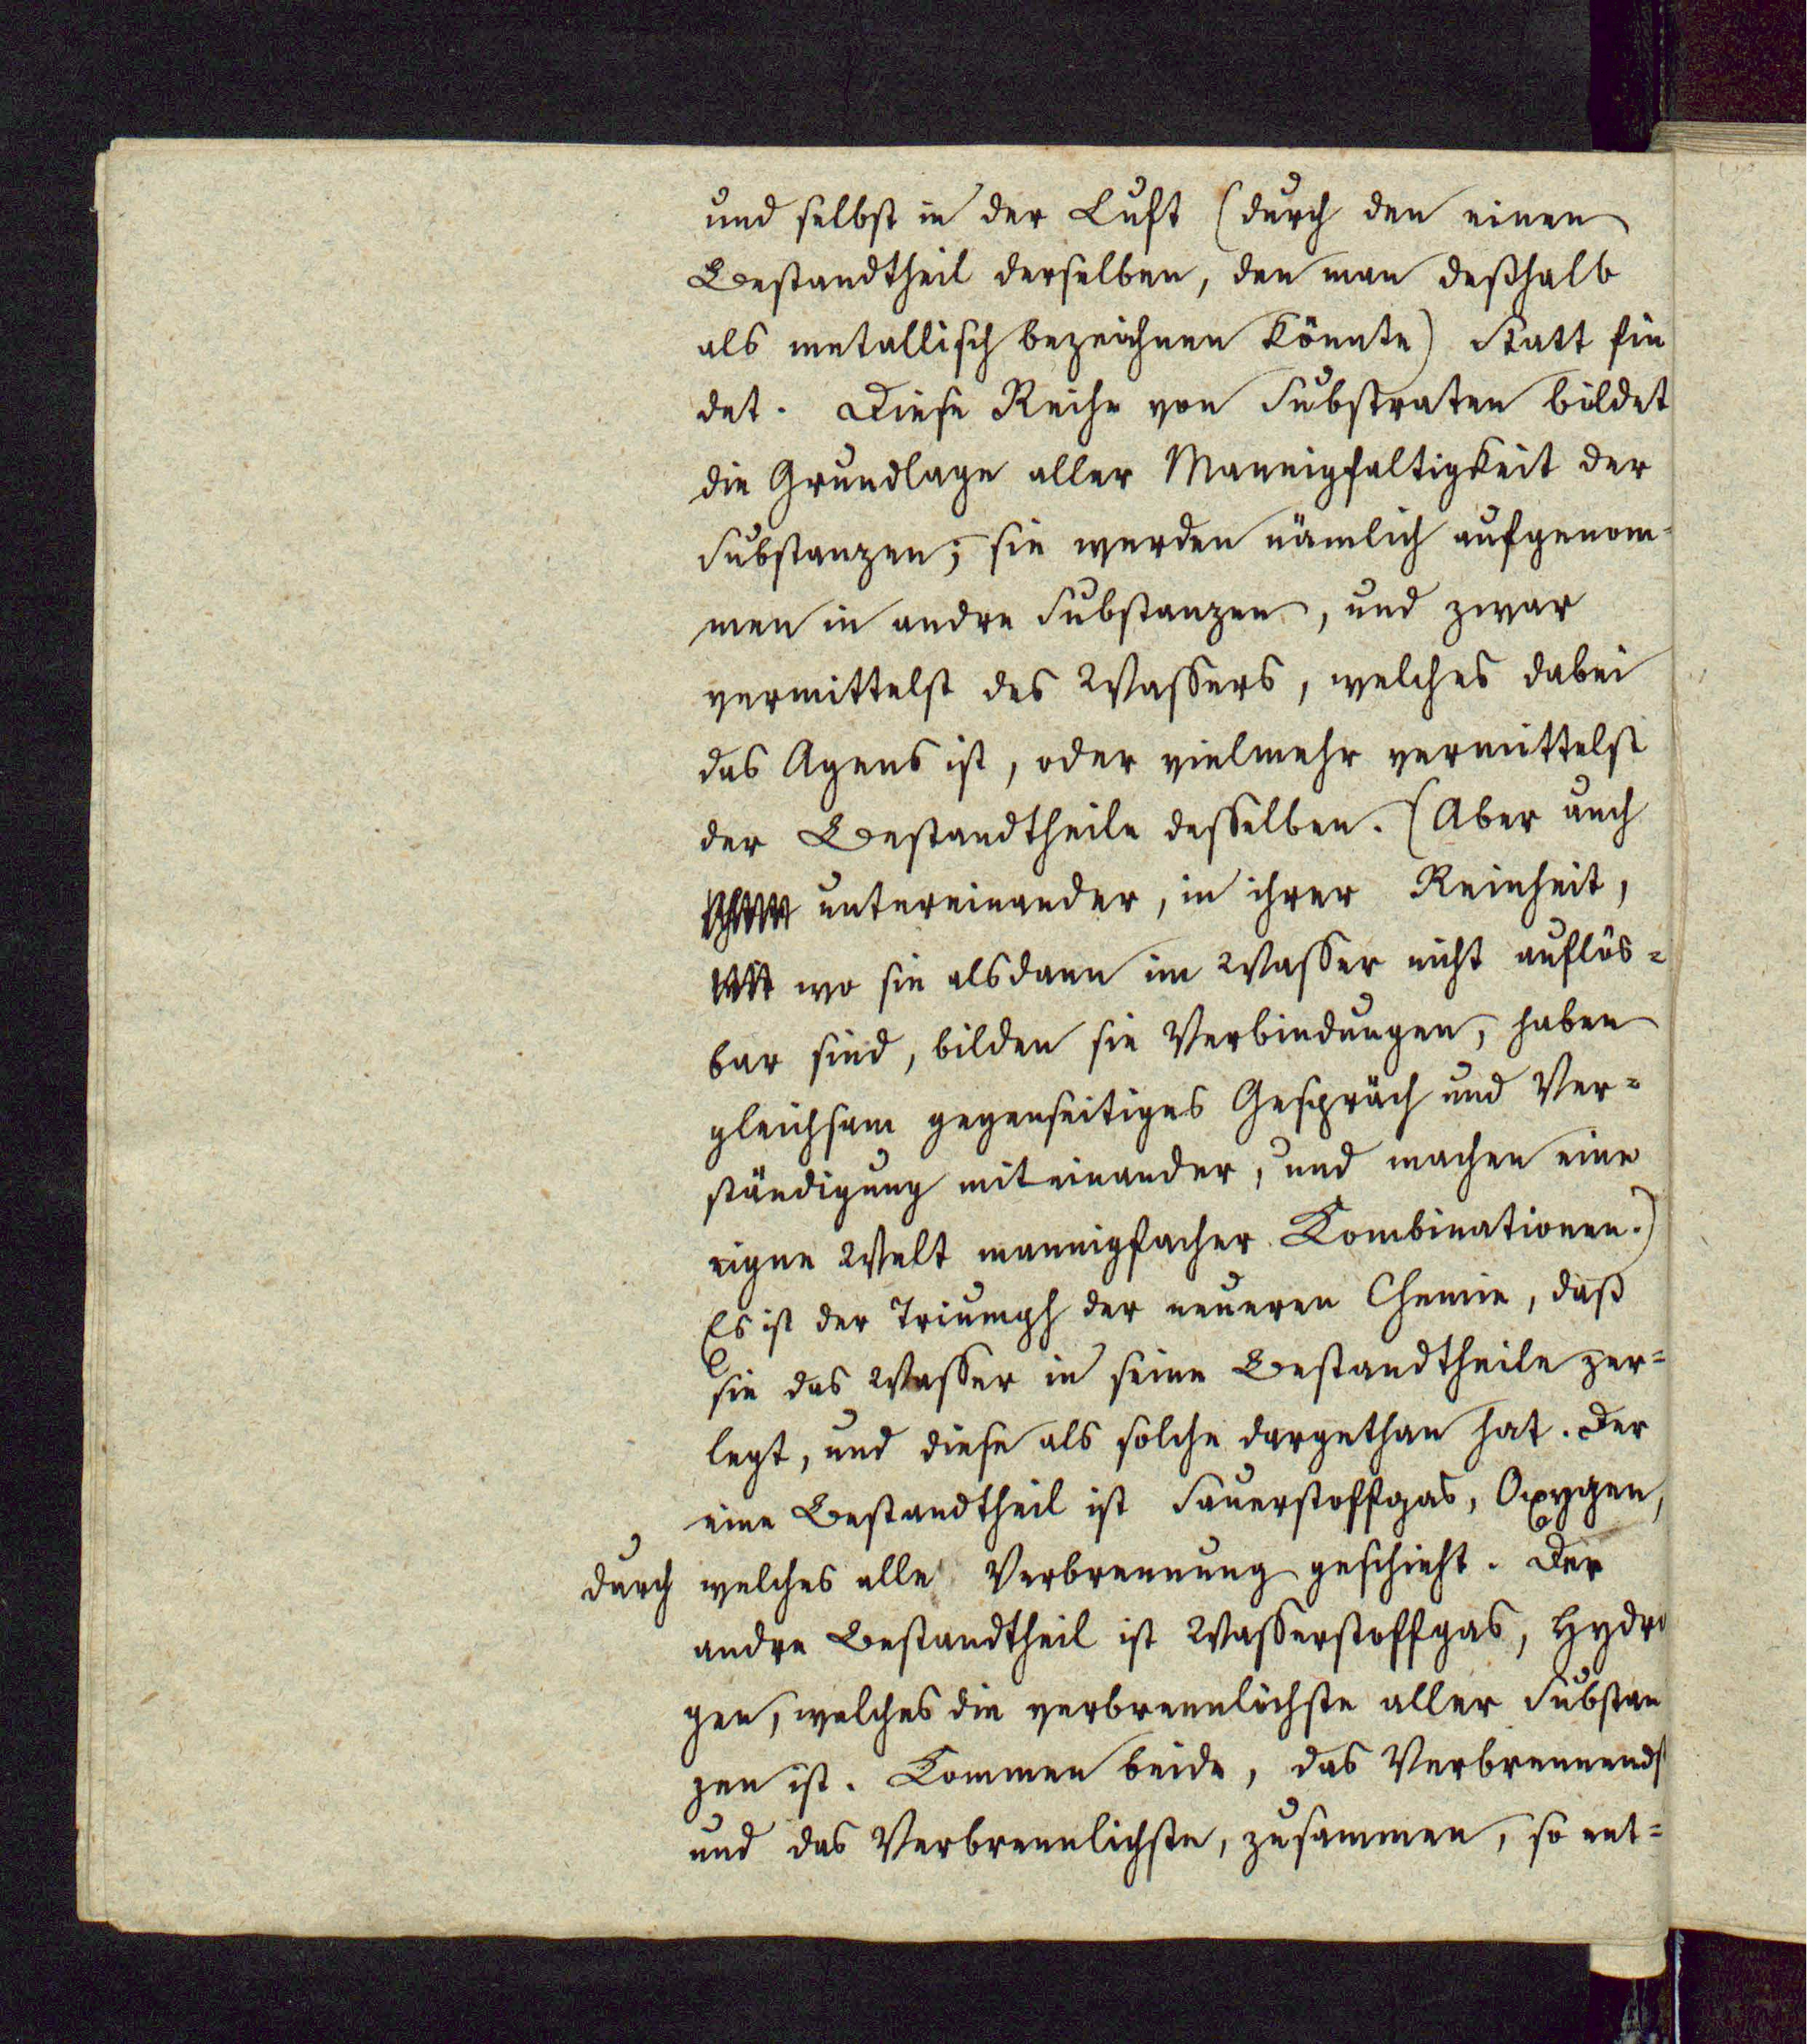 und selbst in der Luft (durch den einen
Bestandtheil derselben, den man deßhalb
als metallisch bezeichnen könnte) Statt fin
det. Diese Reihe von Substraten bildet
die Grundlage aller Mannigfaltigkeit der
Substanzen; sie werden nämlich aufgenom-
men in andre Substanzen, und zwar
vermittelst des Wassers, welches dabei
das Agens ist, oder vielmehr vermittelst
der Bestandtheile desselben. (Aber auch
untereinander, in ihrer Reinheit,
wo sie alsdann im Wasser nicht auflös-
bar sind, bilden sie Verbindungen, haben
gleichsam gegenseitiges Gespräch und Ver-
ständigung miteinander, und machen eine
eigne Welt mannigfacher Kombinationen.)
Es ist der Triumph der neueren Chemie, daß
sie das Wasser in seine Bestandtheile zer-
legt, und diese als solche dargethan hat. Der
eine Bestandtheil ist Sauerstoffgas, Oxygen,
durch welches alle Verbrennung geschieht. Der
andre Bestandtheil ist Wasserstoffgas, Hydro
gen, welches die verbrennlichste aller Substan
zen ist. Kommen beide, das Verbrennends
und das Verbrennlichste, zusammen, so ent-